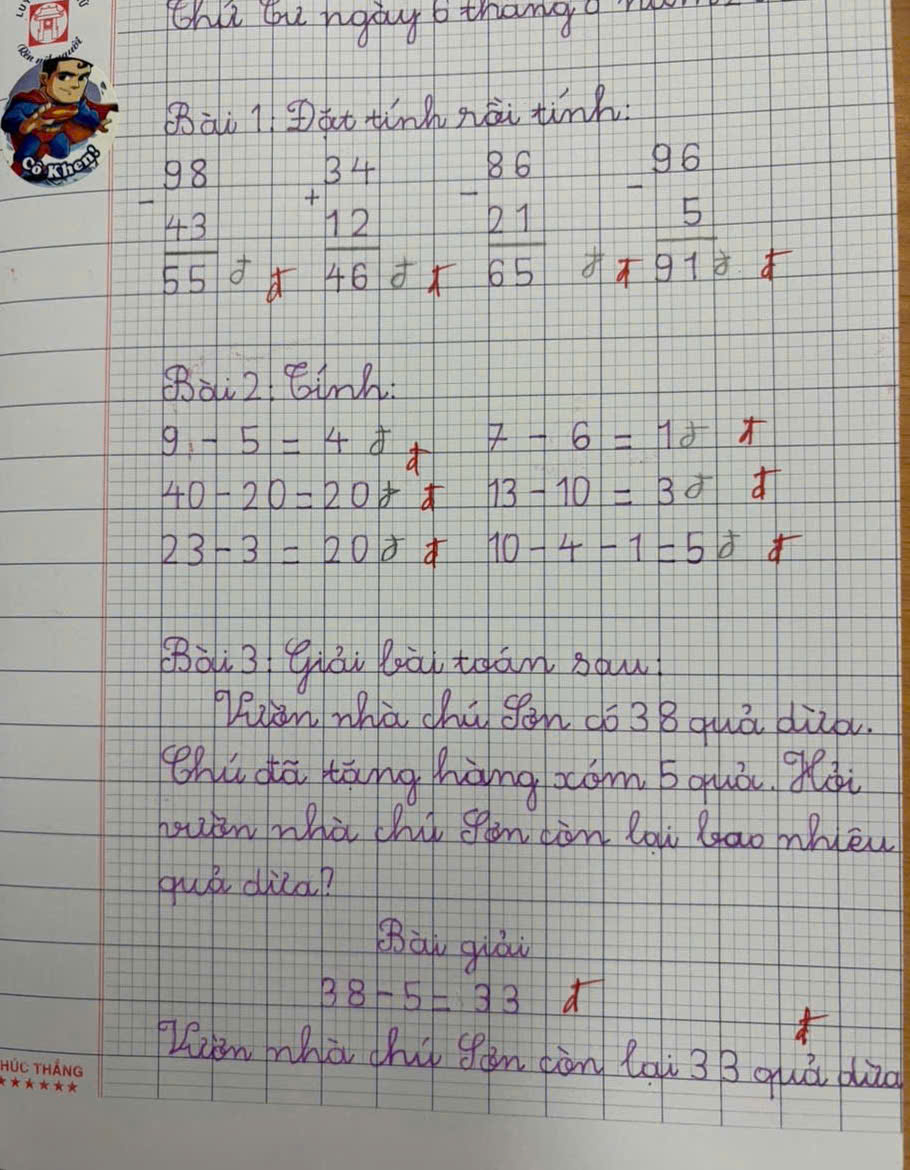 Thứ tư ngày 6 tháng
LUY
Rèn nét người
Cô Khen!
Bài 1: Đặt tính rồi tính:
98 34 86 96
- + - -
43 12 21 5
55 đ đ 46 đ đ 65 đ đ 91 đ đ
Bài 2: Tính:
9 - 5 = 4 đ đ 7 - 6 = 1 đ đ
40 - 20 = 20 đ đ 13 - 10 = 3 đ đ
23 - 3 = 20 đ đ 10 - 4 - 1 = 5 đ đ
Bài 3: Giải bài toán sau:
Vườn nhà chú Sơn có 38 quả dừa.
Chú đã tặng hàng xóm 5 quả. Hỏi
vườn nhà chú Sơn còn lại bao nhiêu
quả dừa?
Bài giải
38 - 5 = 33 đ
đ
Vườn nhà chú Sơn còn lại 33 quả dừa
HÚC THẮNG